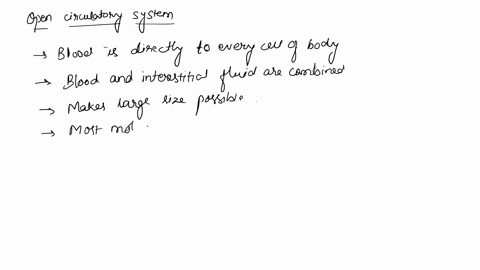 Open circulatory system
→ Blood is directly to every cell of body
→ Blood and interstitial fluid are combined
→ Makes large size possible.
→ Most mol